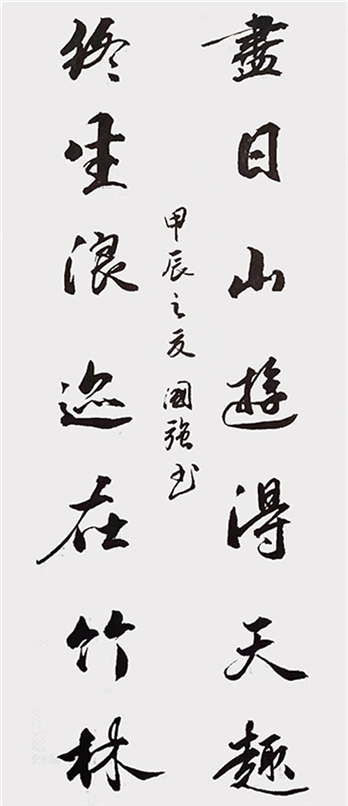 盡日山遊得天趣
終生浪迹在竹林
甲辰之夏國強书